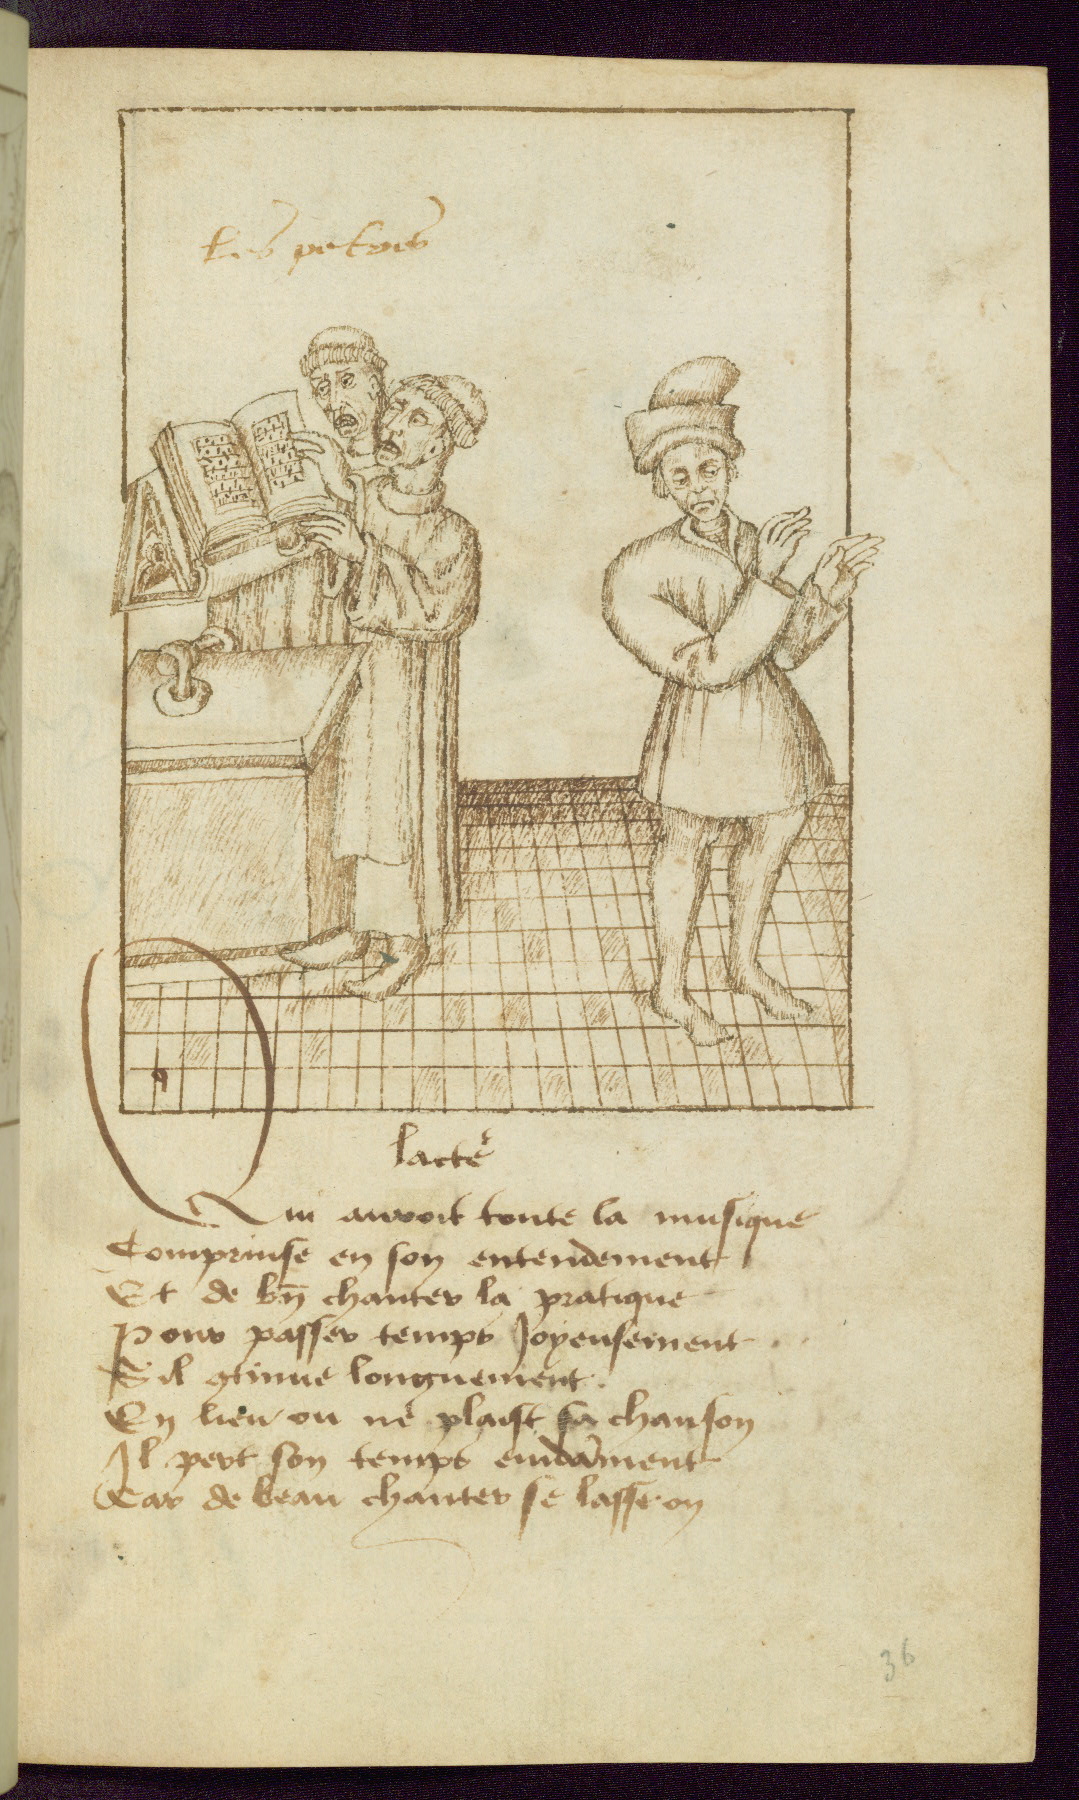 Les pebres
lacteur
Qui auroit toute la musique
Comprinse en son entendement
Et de bn chanter la pratique
Pour passer temps Joyeusement
Sil gtinue longuement.
En lieu ou ne plaist sa chanson
Il pert son temps
Car de beau chanter se lasse on
36